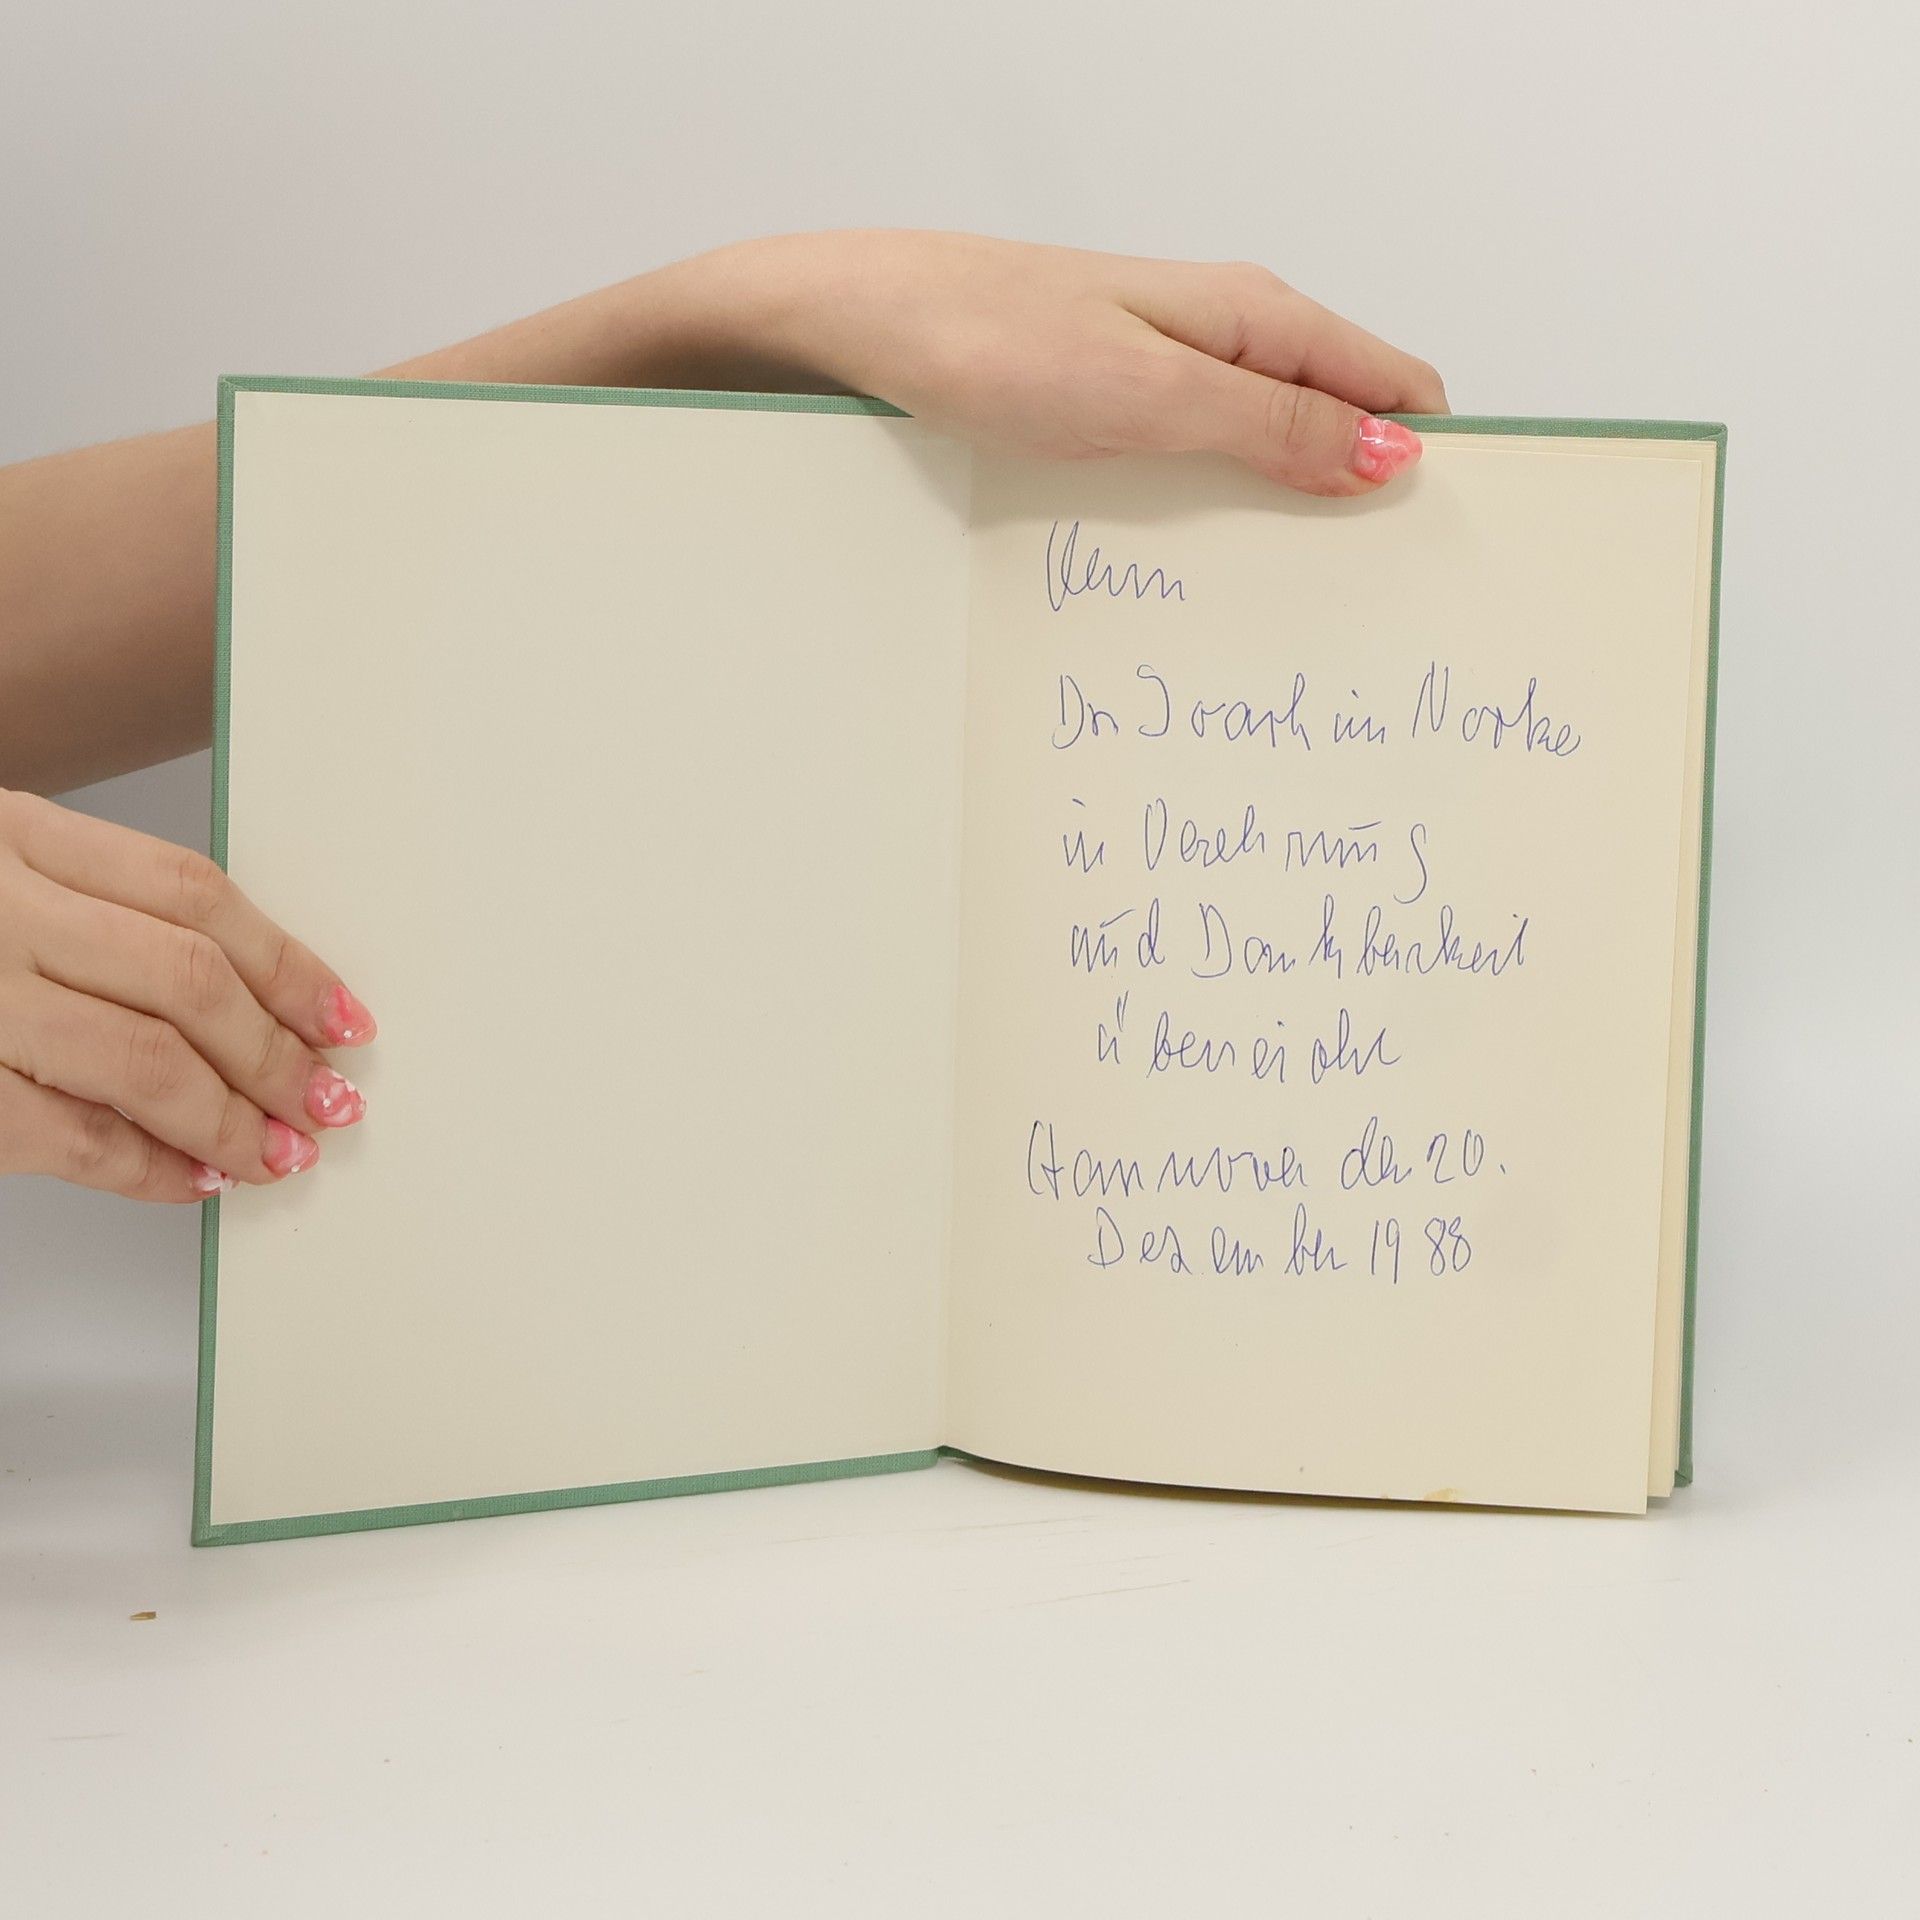 Herrn
Dr. Joachim Nocke
in Verehrung
und Dankbarkeit
überreicht
Hannover den 20.
Dezember 1988